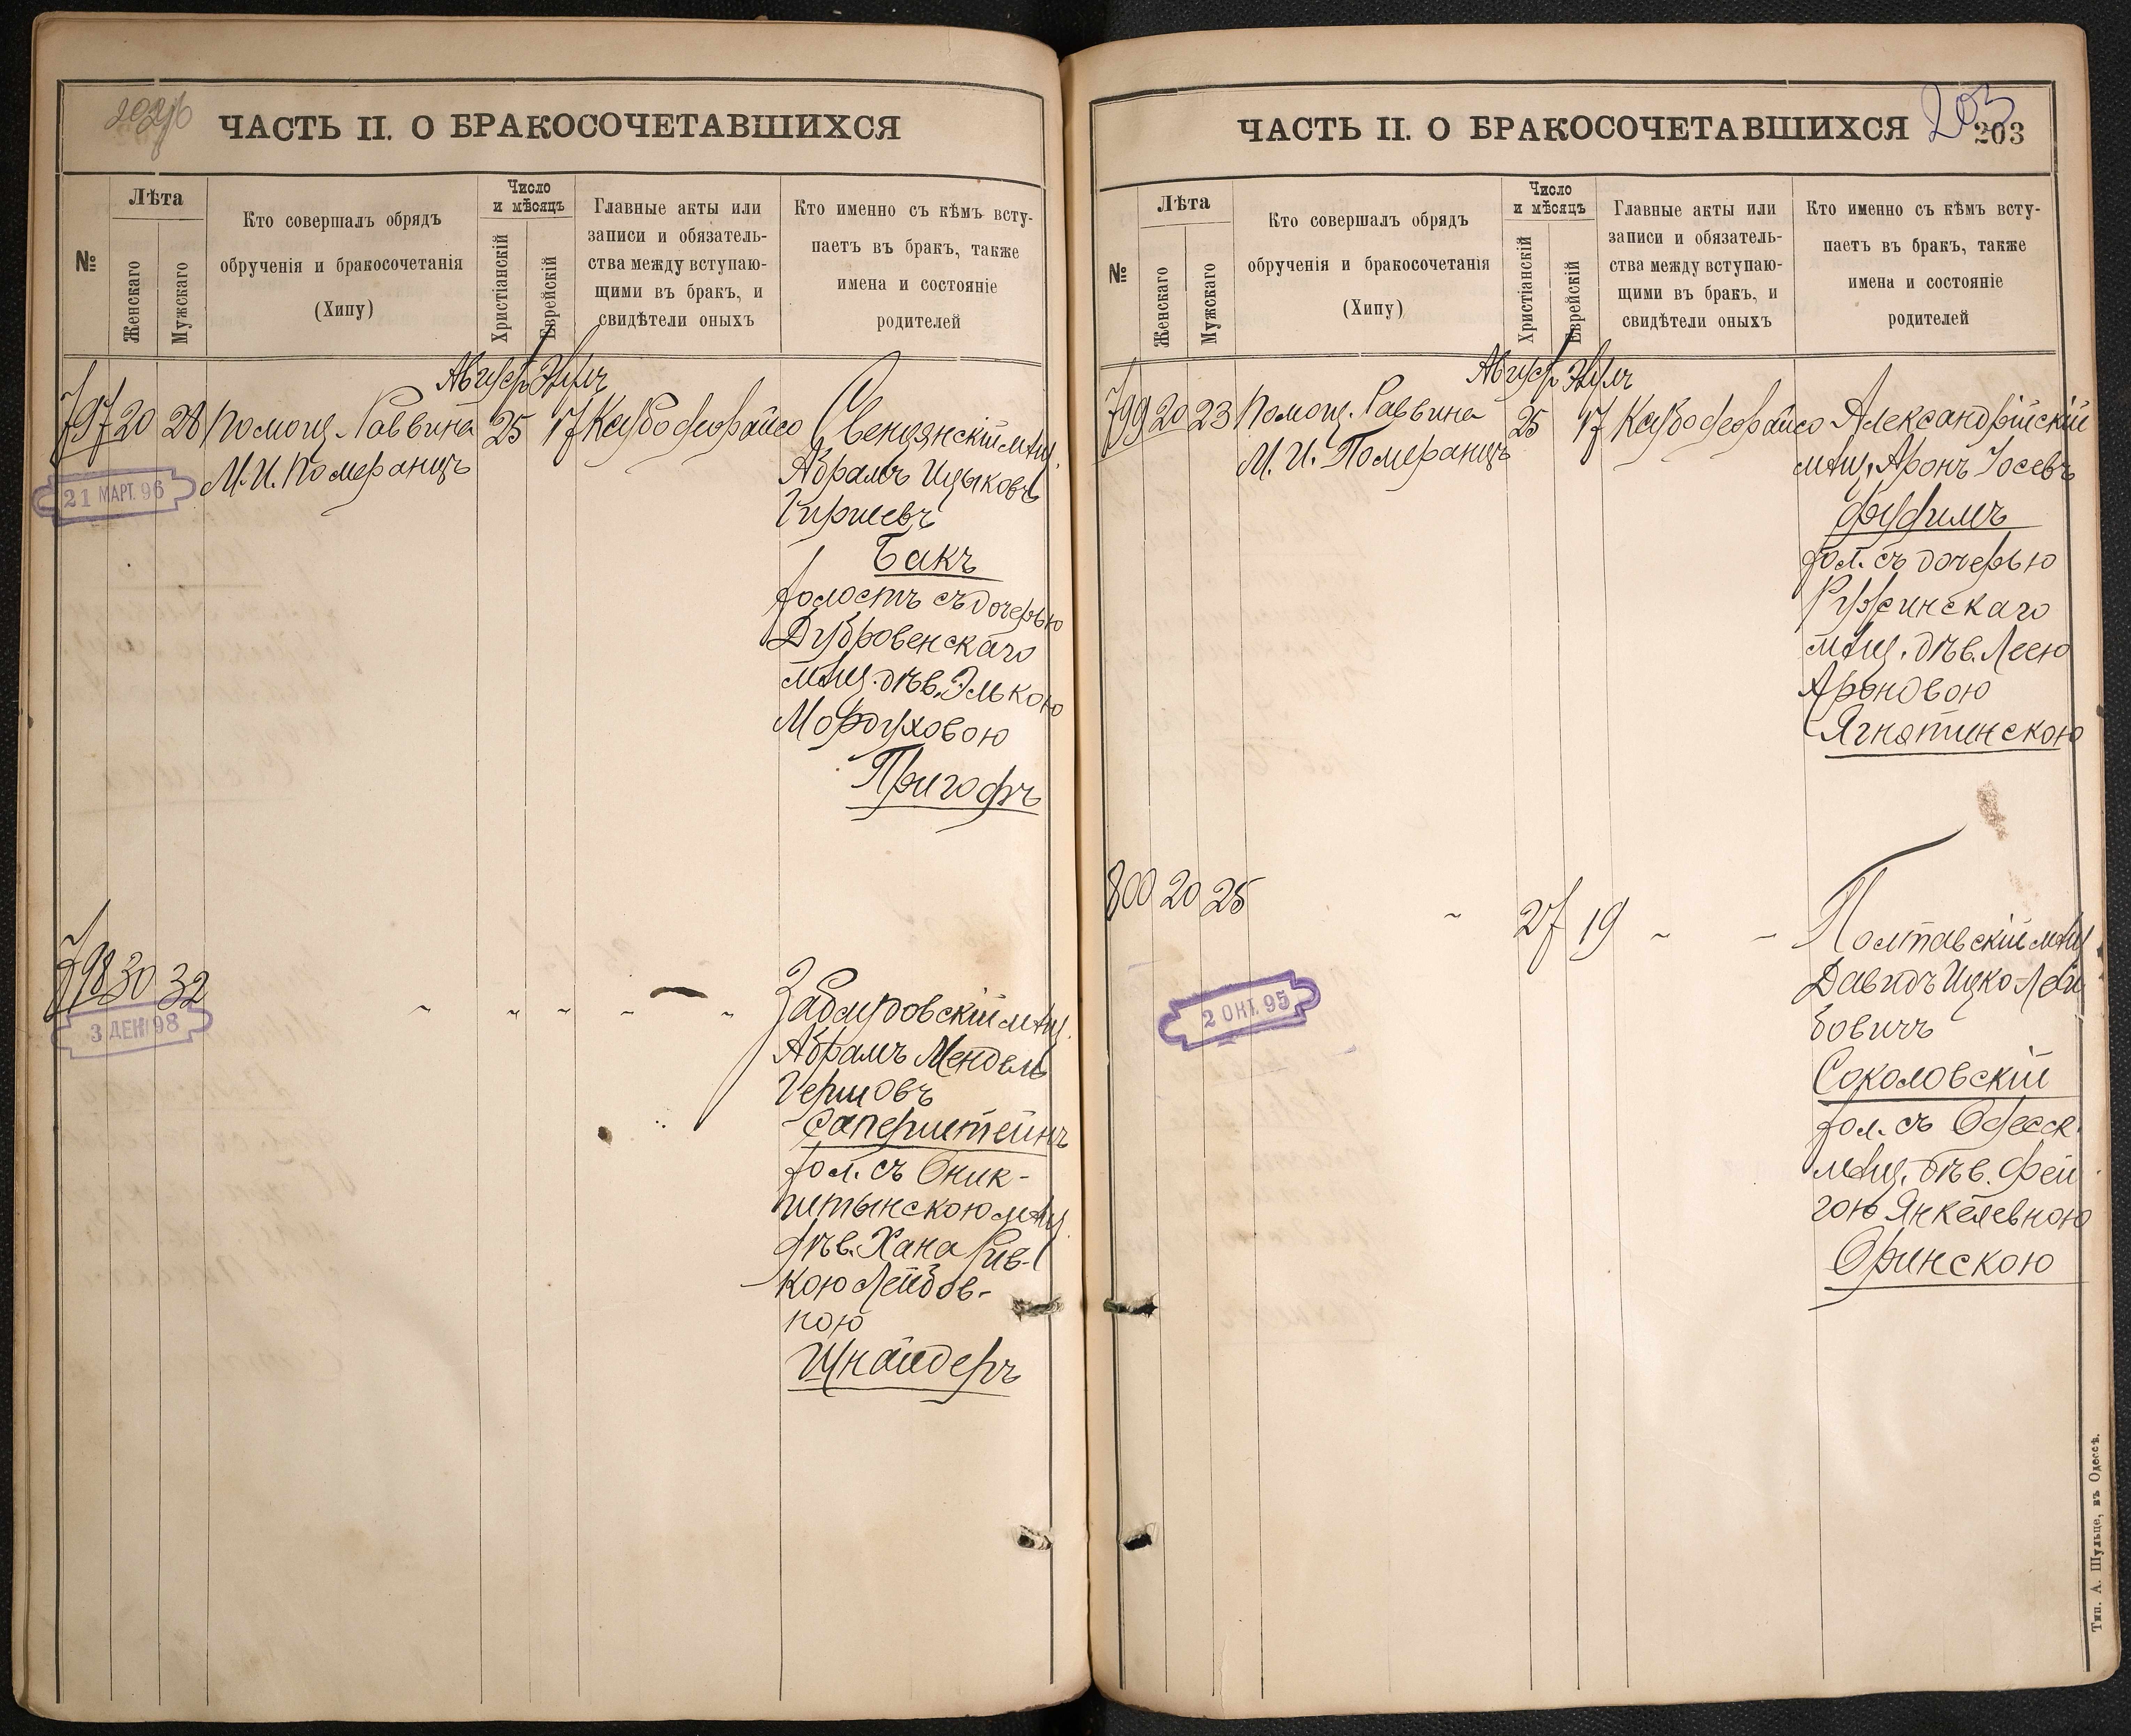 ЧАСТЬ II. О БРАКОСОЧЕТАВШИХСЯ
№
Лѣта
Женскаго
Мужскаго
Кто совершалъ обрядъ
обрученія и бракосочетанія
(Хипу)
Число
и мѣсяцъ
Христіанскій
Еврейскій
Главные акты или
записи и обязатель-
ства между вступаю-
щими въ бракъ, и
свидѣтели оныхъ
Кто именно съ кѣмъ всту-
паетъ въ бракъ, также
имена и состояніе
родителей
797 20 28 Помощ. Раввина
М. И. Померанцъ
Август Элулъ
25 17
Свенцянскій мѣщ.
Абрамъ Ицыковъ
Гиршевъ
Бакъ
холостъ съ дочерью
Дубровенскаго
мѣщ. дѣв. Элькою
Мордуховою
Пригоръ
21 МАРТ. 96
798 30 32
3 ДЕК 98
мѣщ.
Абрамъ Мендель
Гершовъ
Саперштейнъ
хол. съ Оник-
штынскою мѣщ.
дѣв. Хана Рив-
кою Лейбов-
ною
Шнайдеръ
ЧАСТЬ II. О БРАКОСОЧЕТАВШИХСЯ
203
203
№
Лѣта
Женскаго
Мужскаго
Кто совершалъ обрядъ
обрученія и бракосочетанія
(Хипу)
Число
и мѣсяцъ
Христіанскій
Еврейскій
Главные акты или
записи и обязатель-
ства между вступаю-
щими въ бракъ, и
свидѣтели оныхъ
Кто именно съ кѣмъ всту-
паетъ въ бракъ, также
имена и состояніе
родителей
799 20 23 Помощ. Раввина
М. И. Померанцъ
Август Элулъ
25 17
Александрійскій
мѣщ. Аронъ Іосевъ
хол. съ дочерью
Ружинскаго
мѣщ. дѣв. Леею
Ароновою
Ягнятинскою
800 20 25 27 19
2 ОКТ. 95
Полтавскій мѣщ
Давидъ Ицко-Лей
бовичъ
Соколовскій
хол. съ Одесск.
мѣщ. дѣв. Фей
гою Янкелевною
Оринскою
Тип. А. Шульце, въ Одессѣ.